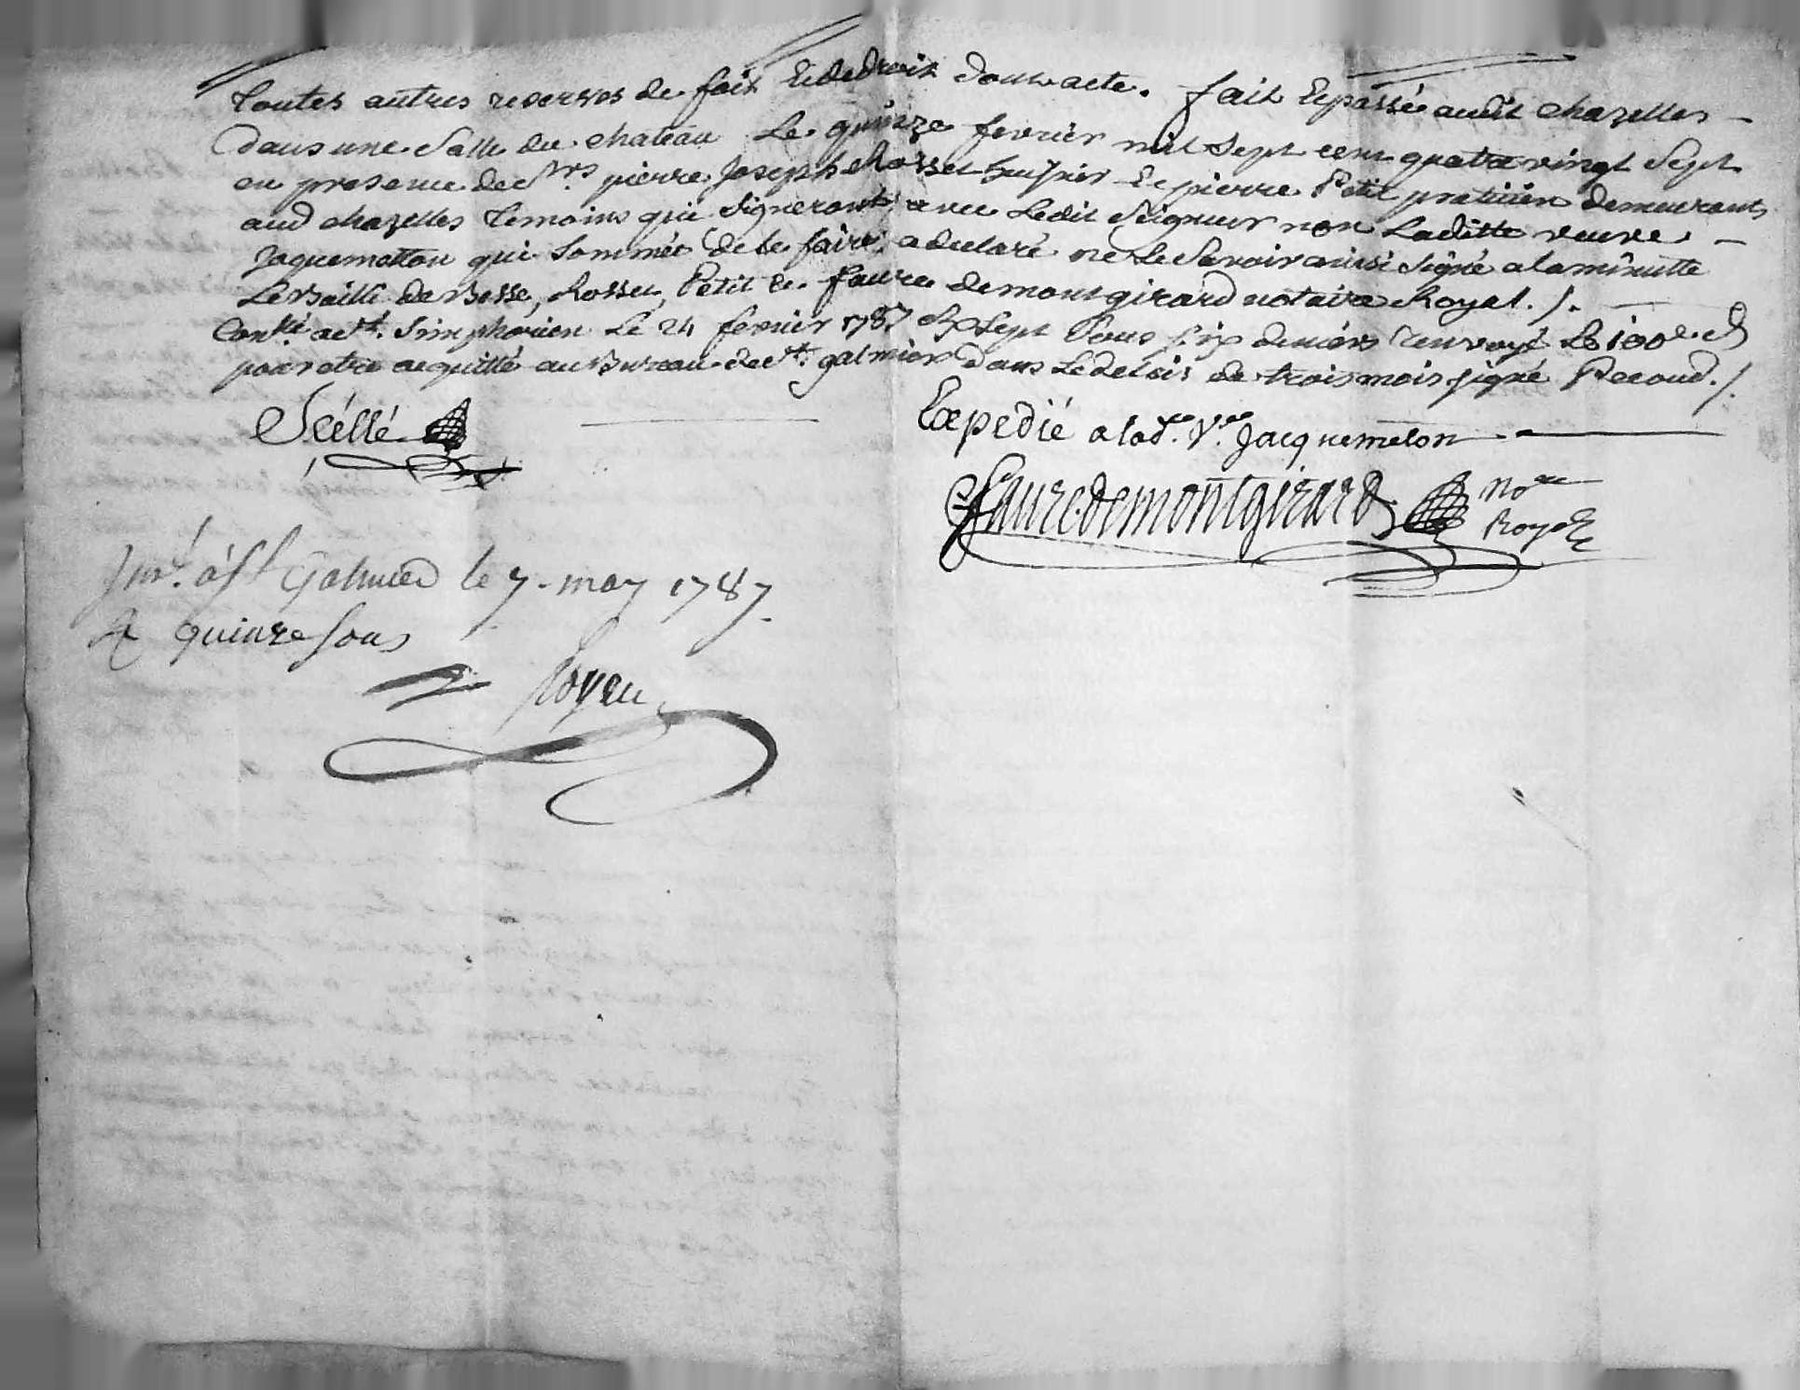 toutes autres reserves de fait Et de droit dont acte. fait Et passé audit chazelles
dans une Salle du chateau Le quinze fevrier mil Sept cent quatre vingt Sept
en presence de Srs pierre Joseph Rosset huissier Et pierre Petit praticien demeurants
aud chazelles temoins qui Signeront avec Ledit Seigneur non Laditte veuve
Jaquemetton qui Sommée de le faire a declaré ne Le Savoir ainsi Signé a la minutte
Le Bailli de Besse, Rosset, Petit Et faure de montgirard notaire Royal./.
Conlé a St. Simphorien Le 24 fevrier 1787 Sept Sous Six deniers renvoyé Le 100e d
pour etre acquitté au Bureau de St. galmier dans Le delais de trois mois signé Pecoud./.
Scéllé
Expedié a lade. Ve. Jacquemeton
Faure de montgirard Nore
Royal
Insé. à St Galmier le 7. may 1787.
R quinze sous
Poyeu